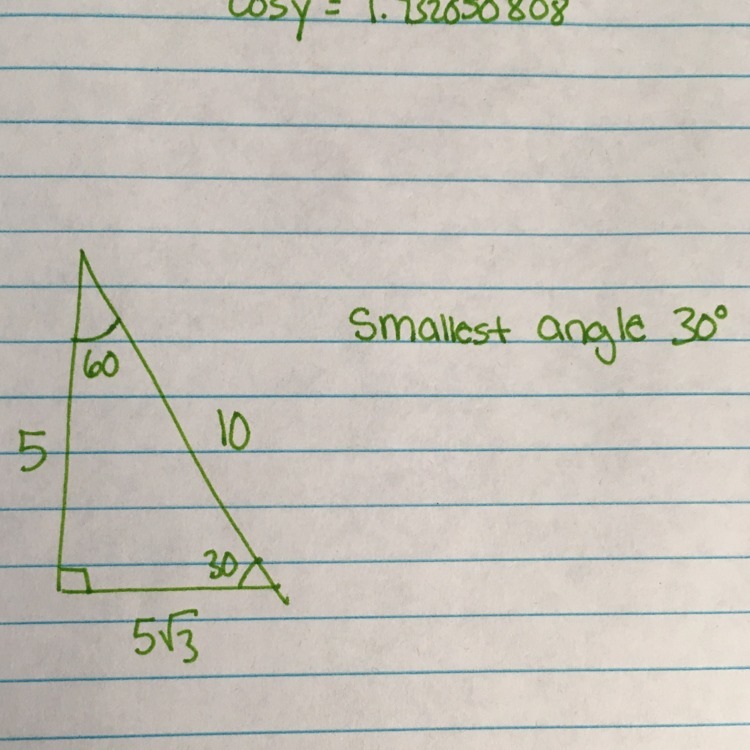 cosy = 1.732050808
60
Smallest angle 30°
5
10
30
5√3